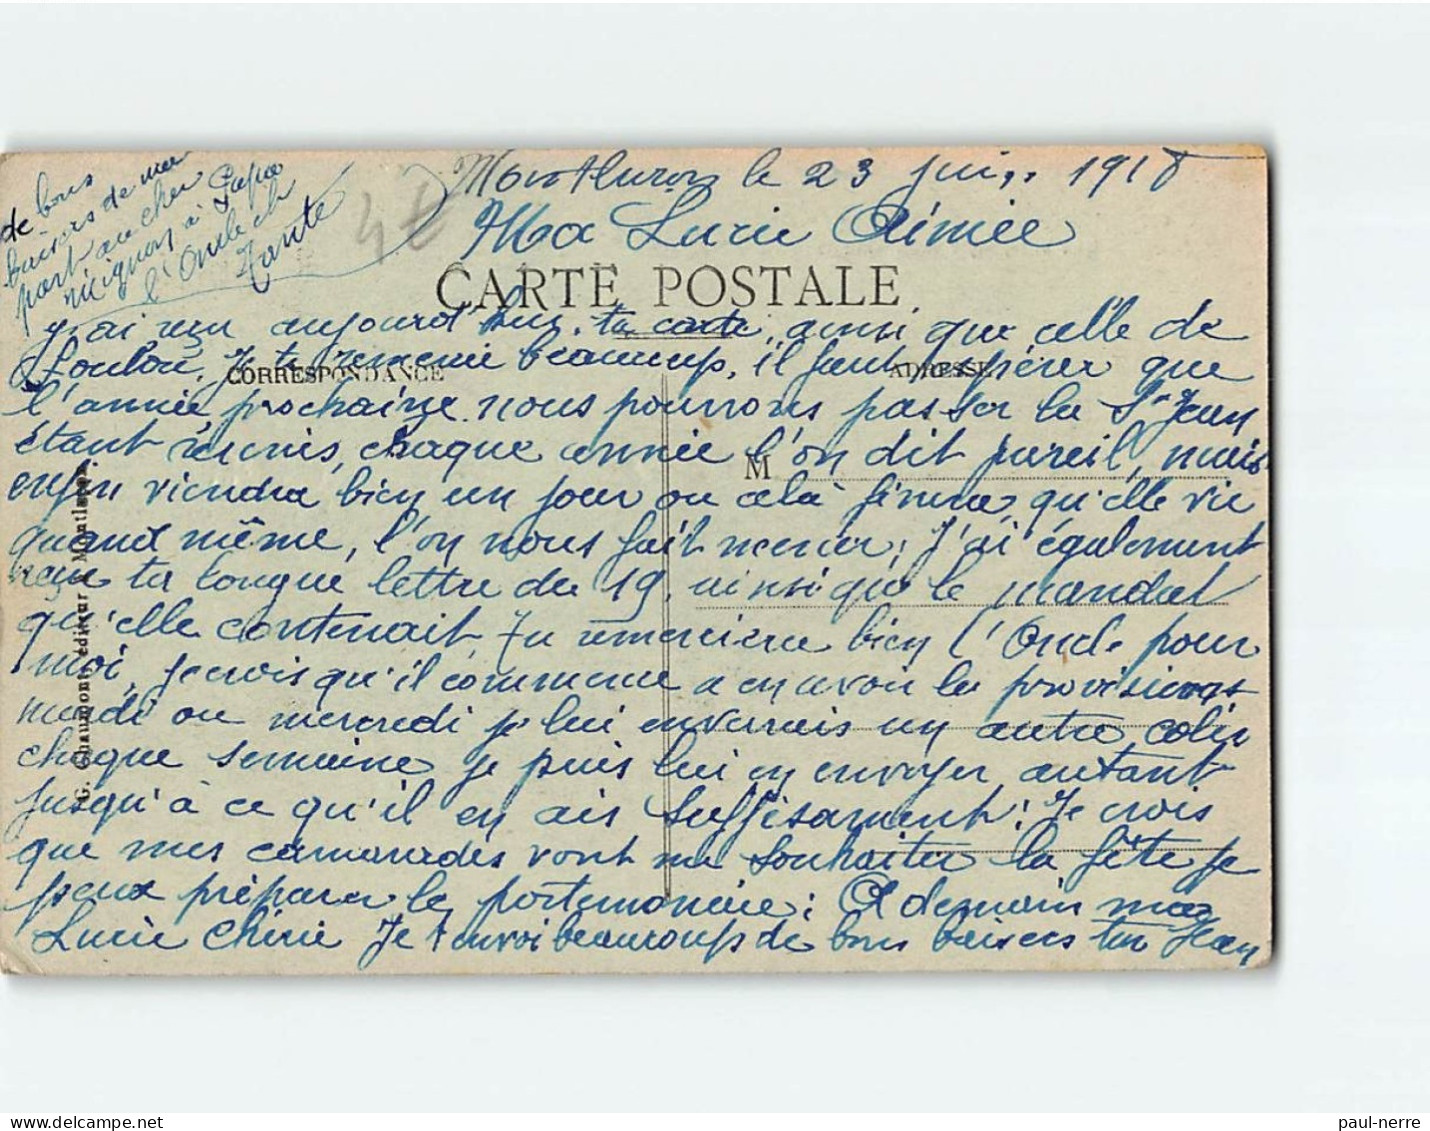 Montluçon le 23 juin 1918
Ma Lucie Aimée
CARTE POSTALE
de bons
baisers de ma
part au cher
mignon à Papa
l'Oncle et
Tante
4€
J'ai reçu aujourd'hui ta carte, ainsi que celle de
Loulou, Je te remercie beaucoup, il faut espérer que
CORRESPONDANCE
ADRESSE
l'année prochaine nous pourrons passer la St Jean
étant réunis, chaque année l'on dit pareil, mais
M
enfin viendra bien un jour ou celà finira, qu'elle vie
quand même, l'on nous fait mener, J'ai également
reçu ta longue lettre du 19, ainsi que le mandat
qu'elle contenait, Tu remerciera bien l'Oncle pour
moi, je crois qu'il commence a en avoir des provisions
mardi ou mercredi je lui enverrais un autre colis
chaque semaine je puis lui en envoyer autant
jusqu'à ce qu'il en ais suffisament! Je crois
que mes camarades vont me souhaiter la fête je
peux préparer le portemonaie; A demain ma
Lucie Chérie Je t'envoi beaucoups de bons baisers ton Jean
G. Chaumont, éditeur Montluçon.
paul-nerre